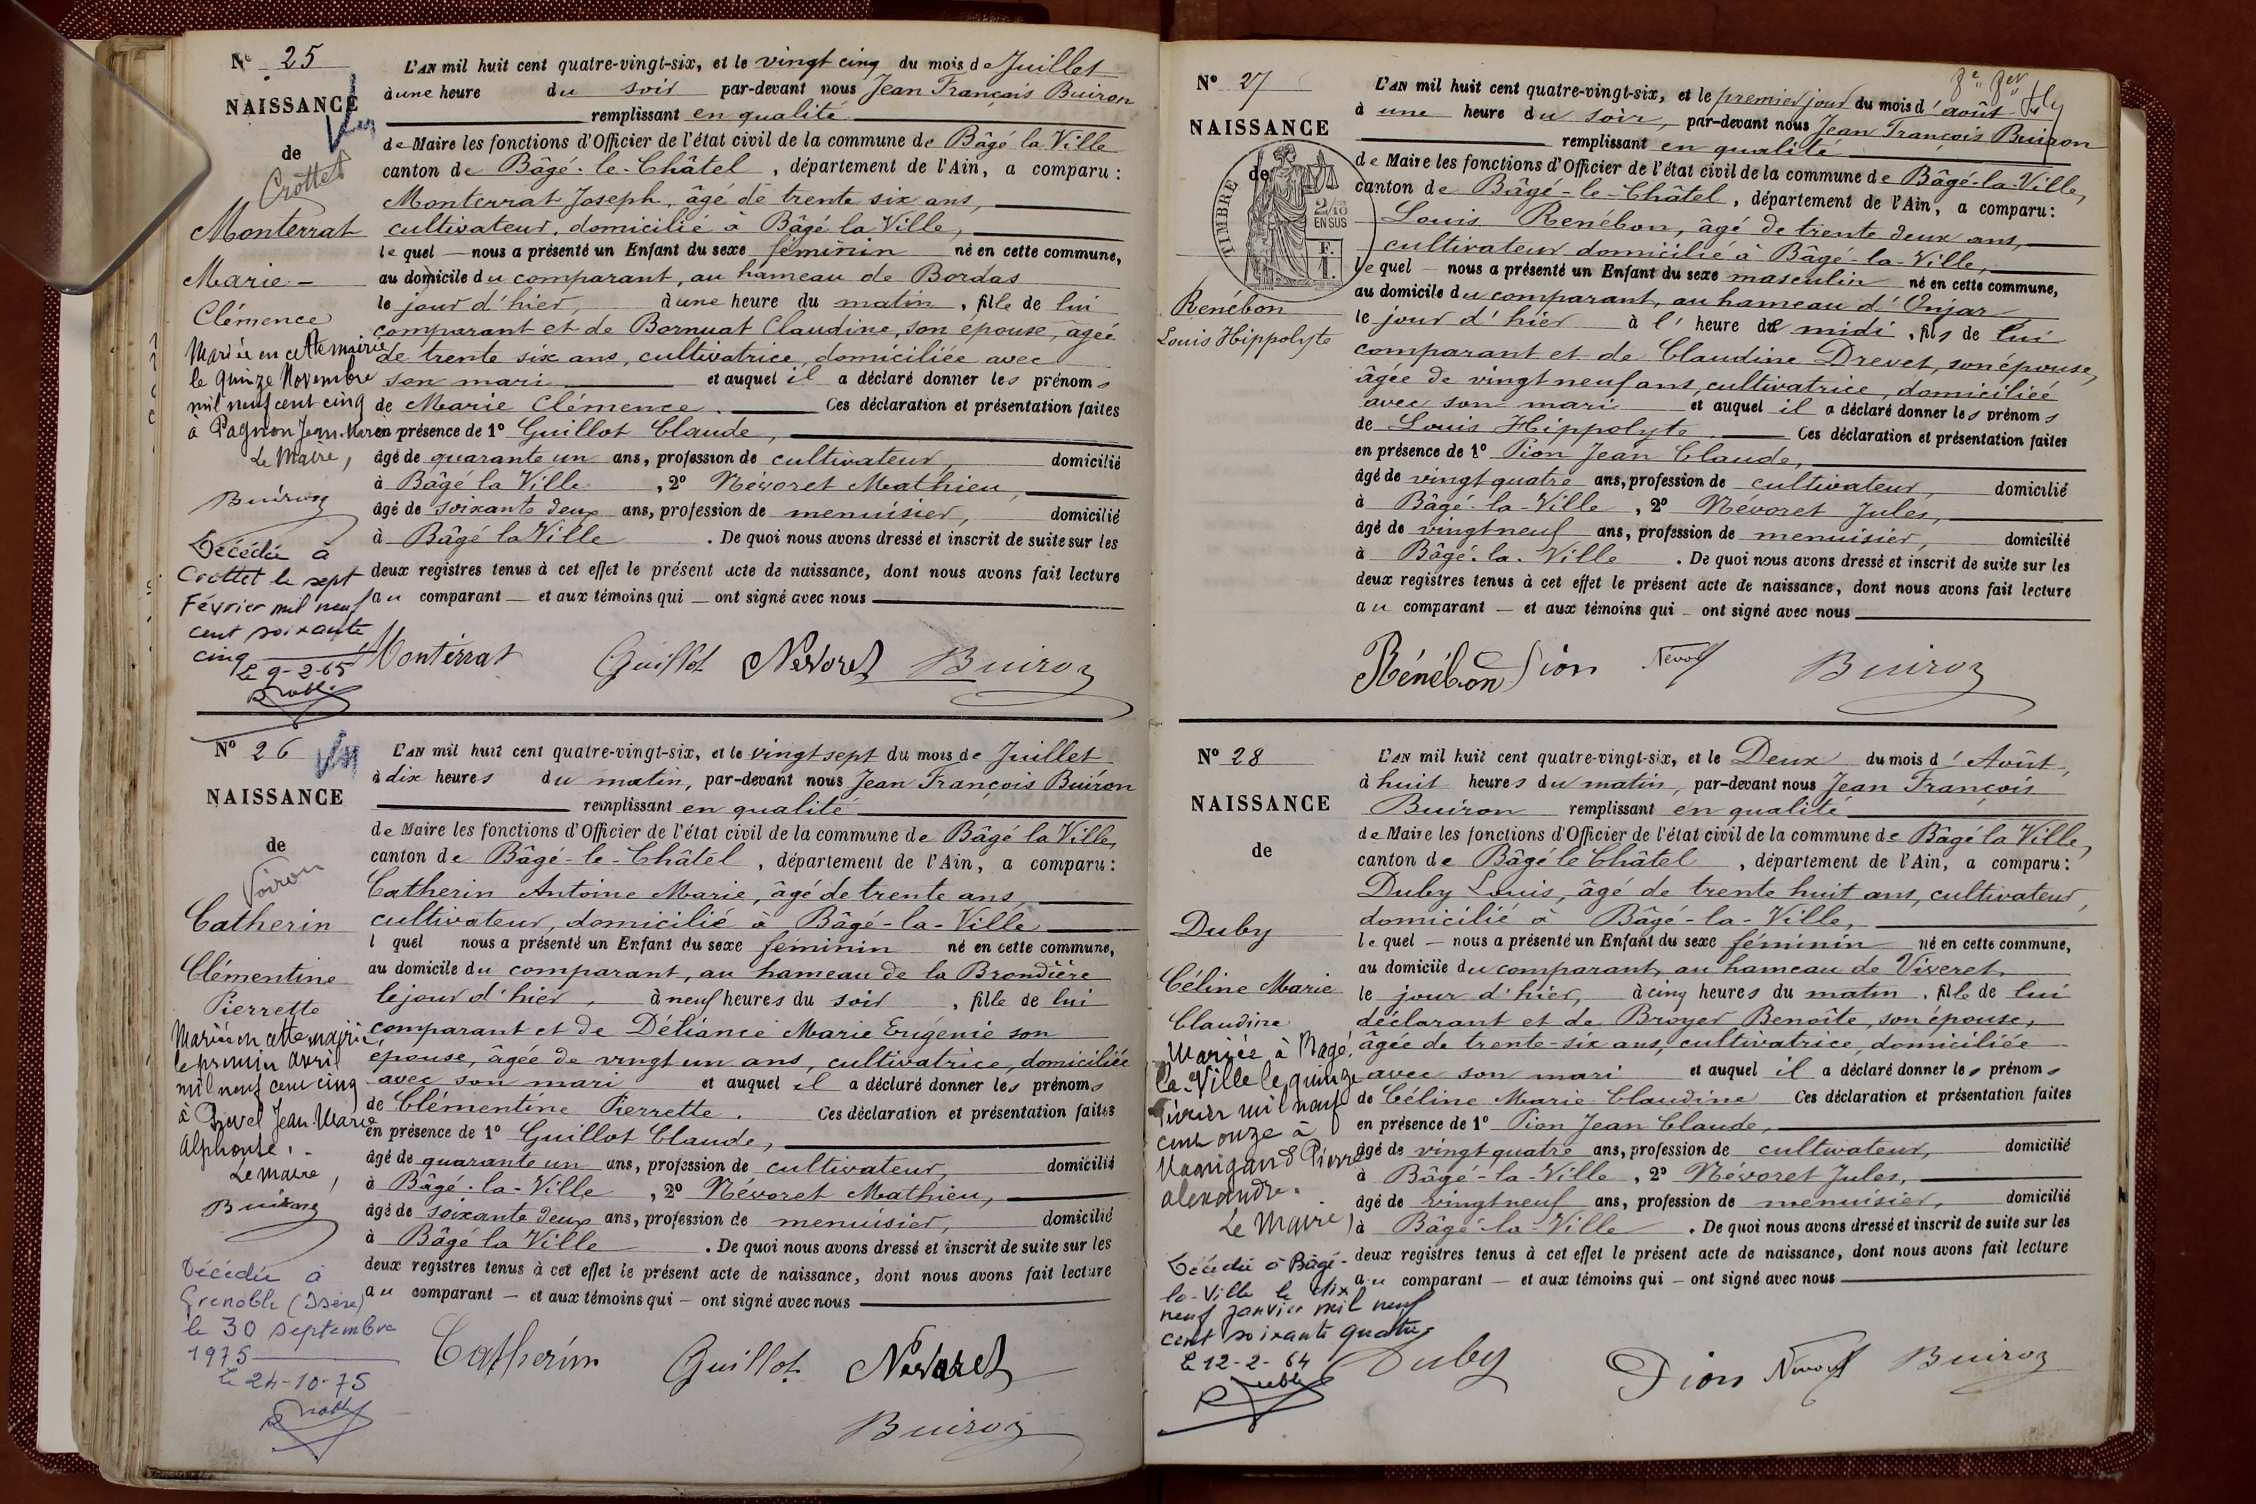 Nº 25
NAISSANCE
de
Crottet
Monterrat
Marie -
Clémence
Mariée en cette mairie
le quinze Novembre
mil neuf cent cinq
à Pagnon Jean Marie
Le Maire,
Buiron
Décédée à
Crottet le sept
Février mil neuf
cent soixante
cinq
Le 9-2-65
L'AN mil huit cent quatre-vingt-six, et le vingt cinq du mois de Juillet
à une heure du soir par-devant nous Jean François Buiron
remplissant en qualité
de Maire les fonctions d'Officier de l'état civil de la commune de Bâgé la Ville
canton de Bâgé-le-Châtel, département de l'Ain, a comparu:
Monterrat Joseph, âgé de trente six ans,
cultivateur, domicilié à Bâgé la Ville,
le quel — nous a présenté un Enfant du sexe féminin né en cette commune,
au domicile du comparant, au hameau de Bordas
le jour d'hier, à une heure du matin, fille de lui
comparant et de Bornuat Claudine, son épouse, agée
de trente six ans, cultivatrice, domiciliée avec
son mari et auquel il a déclaré donner les prénoms
de Marie Clémence. Ces déclaration et présentation faites
en présence de 1º Guillot Claude,
âgé de quarante un ans, profession de cultivateur, domicilié
à Bâgé la Ville, 2º Névoret Mathieu,
âgé de soixante deux ans, profession de menuisier, domicilié
à Bâgé la Ville. De quoi nous avons dressé et inscrit de suite sur les
deux registres tenus à cet effet le présent acte de naissance, dont nous avons fait lecture
au comparant — et aux témoins qui — ont signé avec nous
Montérrat Guillot Nevoret Buiron
Nº 26
NAISSANCE
de
Voiron
Catherin
Clémentine
Pierrette
Mariée en cette mairie
le premier avril
mil neuf cent cinq
à Jean Marie
Alphonse.
Le maire,
Buiron
Décédée à
Grenoble (Isère)
le 30 septembre
1975
Le 24-10-75
L'AN mil huit cent quatre-vingt-six, et le vingt sept du mois de Juillet
à dix heures du matin, par-devant nous Jean François Buiron
remplissant en qualité
de Maire les fonctions d'Officier de l'état civil de la commune de Bâgé la Ville,
canton de Bâgé-le-Châtel, département de l'Ain, a comparu:
Catherin Antoine Marie, âgé de trente ans,
cultivateur, domicilié à Bâgé-la-Ville
l quel nous a présenté un Enfant du sexe féminin né en cette commune,
au domicile du comparant, au hameau de la Brondière
le jour d'hier, à neuf heures du soir, fille de lui
comparant et de Déliance Marie Eugénie son
épouse, âgée de vingt un ans, cultivatrice, domiciliée
avec son mari et auquel il a déclaré donner les prénoms
de Clémentine Pierrette. Ces déclaration et présentation faites
en présence de 1º Guillot Claude,
âgé de quarante un ans, profession de cultivateur, domicilié
à Bâgé-la-Ville, 2º Névoret Mathieu,
âgé de soixante deux ans, profession de menuisier, domicilié
à Bâgé la Ville. De quoi nous avons dressé et inscrit de suite sur les
deux registres tenus à cet effet le présent acte de naissance, dont nous avons fait lecture
au comparant — et aux témoins qui — ont signé avec nous
Catherin Guillot Nevoret
Buiron
Nº 27
NAISSANCE
de
TIMBRE
2/10
EN SUS
F.
1.
Renébon
Louis Hippolyte
L'AN mil huit cent quatre-vingt-six, et le premier jour du mois d'août
à une heure du soir, par-devant nous Jean François Buiron
remplissant en qualité
de Maire les fonctions d'Officier de l'état civil de la commune de Bâgé-la-Ville,
canton de Bâgé-le-Châtel, département de l'Ain, a comparu:
Louis Renébon, âgé de trente deux ans,
cultivateur domicilié à Bâgé-la-Ville,
le quel — nous a présenté un Enfant du sexe masculin né en cette commune,
au domicile du comparant, au hameau d'Onjar
le jour d'hier à l'heure de midi, fils de lui
comparant et de Claudine Drevet, son épouse,
âgée de vingt neuf ans, cultivatrice, domiciliée
avec son mari et auquel il a déclaré donner les prénoms
de Louis Hippolyte. Ces déclaration et présentation faites
en présence de 1º Pion Jean Claude,
âgé de vingt quatre ans, profession de cultivateur, domicilié
à Bâgé-la-Ville, 2º Névoret Jules,
âgé de vingt neuf ans, profession de menuisier, domicilié
à Bâgé-la-Ville. De quoi nous avons dressé et inscrit de suite sur les
deux registres tenus à cet effet le présent acte de naissance, dont nous avons fait lecture
au comparant — et aux témoins qui — ont signé avec nous
Rénébon Pion Buiron
Nº 28
NAISSANCE
de
Duby
Céline Marie
Claudine
Mariée à Bagé
la Ville le quinze
février mil neuf
cent onze à
Pierre
alexandre.
Le Maire,
Décédée à Bâgé-
la-Ville le dix
neuf janvier mil neuf
cent soixante quatre
Le 12-2-64
L'AN mil huit cent quatre-vingt-six, et le Deux du mois d'Août,
à huit heures du matin, par-devant nous Jean François
Buiron remplissant en qualité
de Maire les fonctions d'Officier de l'état civil de la commune de Bâgé la Ville,
canton de Bâgé le Châtel, département de l'Ain, a comparu:
Duby Louis, âgé de trente huit ans, cultivateur,
domicilié à Bâgé-la-Ville,
le quel — nous a présenté un Enfant du sexe féminin né en cette commune,
au domicile du comparant, au hameau de Viveret,
le jour d'hier, à cinq heures du matin, fille de lui
déclarant et de Broyer Benoîte, son épouse,
âgée de trente-six ans, cultivatrice, domiciliée
avec son mari et auquel il a déclaré donner les prénoms
de Céline Marie Claudine Ces déclaration et présentation faites
en présence de 1º Pion Jean Claude,
âgé de vingt quatre ans, profession de cultivateur, domicilié
à Bâgé-la-Ville, 2º Névoret Jules,
âgé de vingt neuf ans, profession de menuisier, domicilié
à Bâgé-la-Ville. De quoi nous avons dressé et inscrit de suite sur les
deux registres tenus à cet effet le présent acte de naissance, dont nous avons fait lecture
au comparant — et aux témoins qui — ont signé avec nous
Duby Pion Buiron